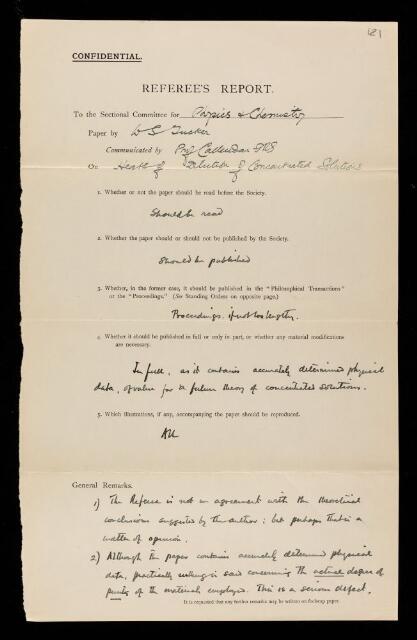 181
CONFIDENTIAL.
REFEREE'S REPORT.
To the Sectional Committee for Physics & Chemistry
Paper by W S Tucker
Communicated by Prof Callendar FRS
On Heats of Dilution of Concentrated Solutions
1. Whether or not the paper should be read before the Society.
Should be read
2. Whether the paper should or should not be published by the Society.
Should be published
3. Whether, in the former case, it should be published in the "Philosophical Transactions"
or the "Proceedings." (See Standing Orders on opposite page.)
Proceedings, if not too lengthy.
4. Whether it should be published in full or only in part, or whether any material modifications
are necessary.
In full, as it contains accurately determined physical
data, of value for a future theory of concentrated solutions.
5. Which illustrations, if any, accompanying the paper should be reproduced.
All
General Remarks.
1) The Referee is not in agreement with the theoretical
conclusions suggested by the author: but perhaps that is a
matter of opinion.
2) Although the paper contains accurately determined physical
data, practically nothing is said concerning the actual degree of
purity of the materials employed. This is a serious defect.
It is requested that any further remarks may be written on foolscap paper.